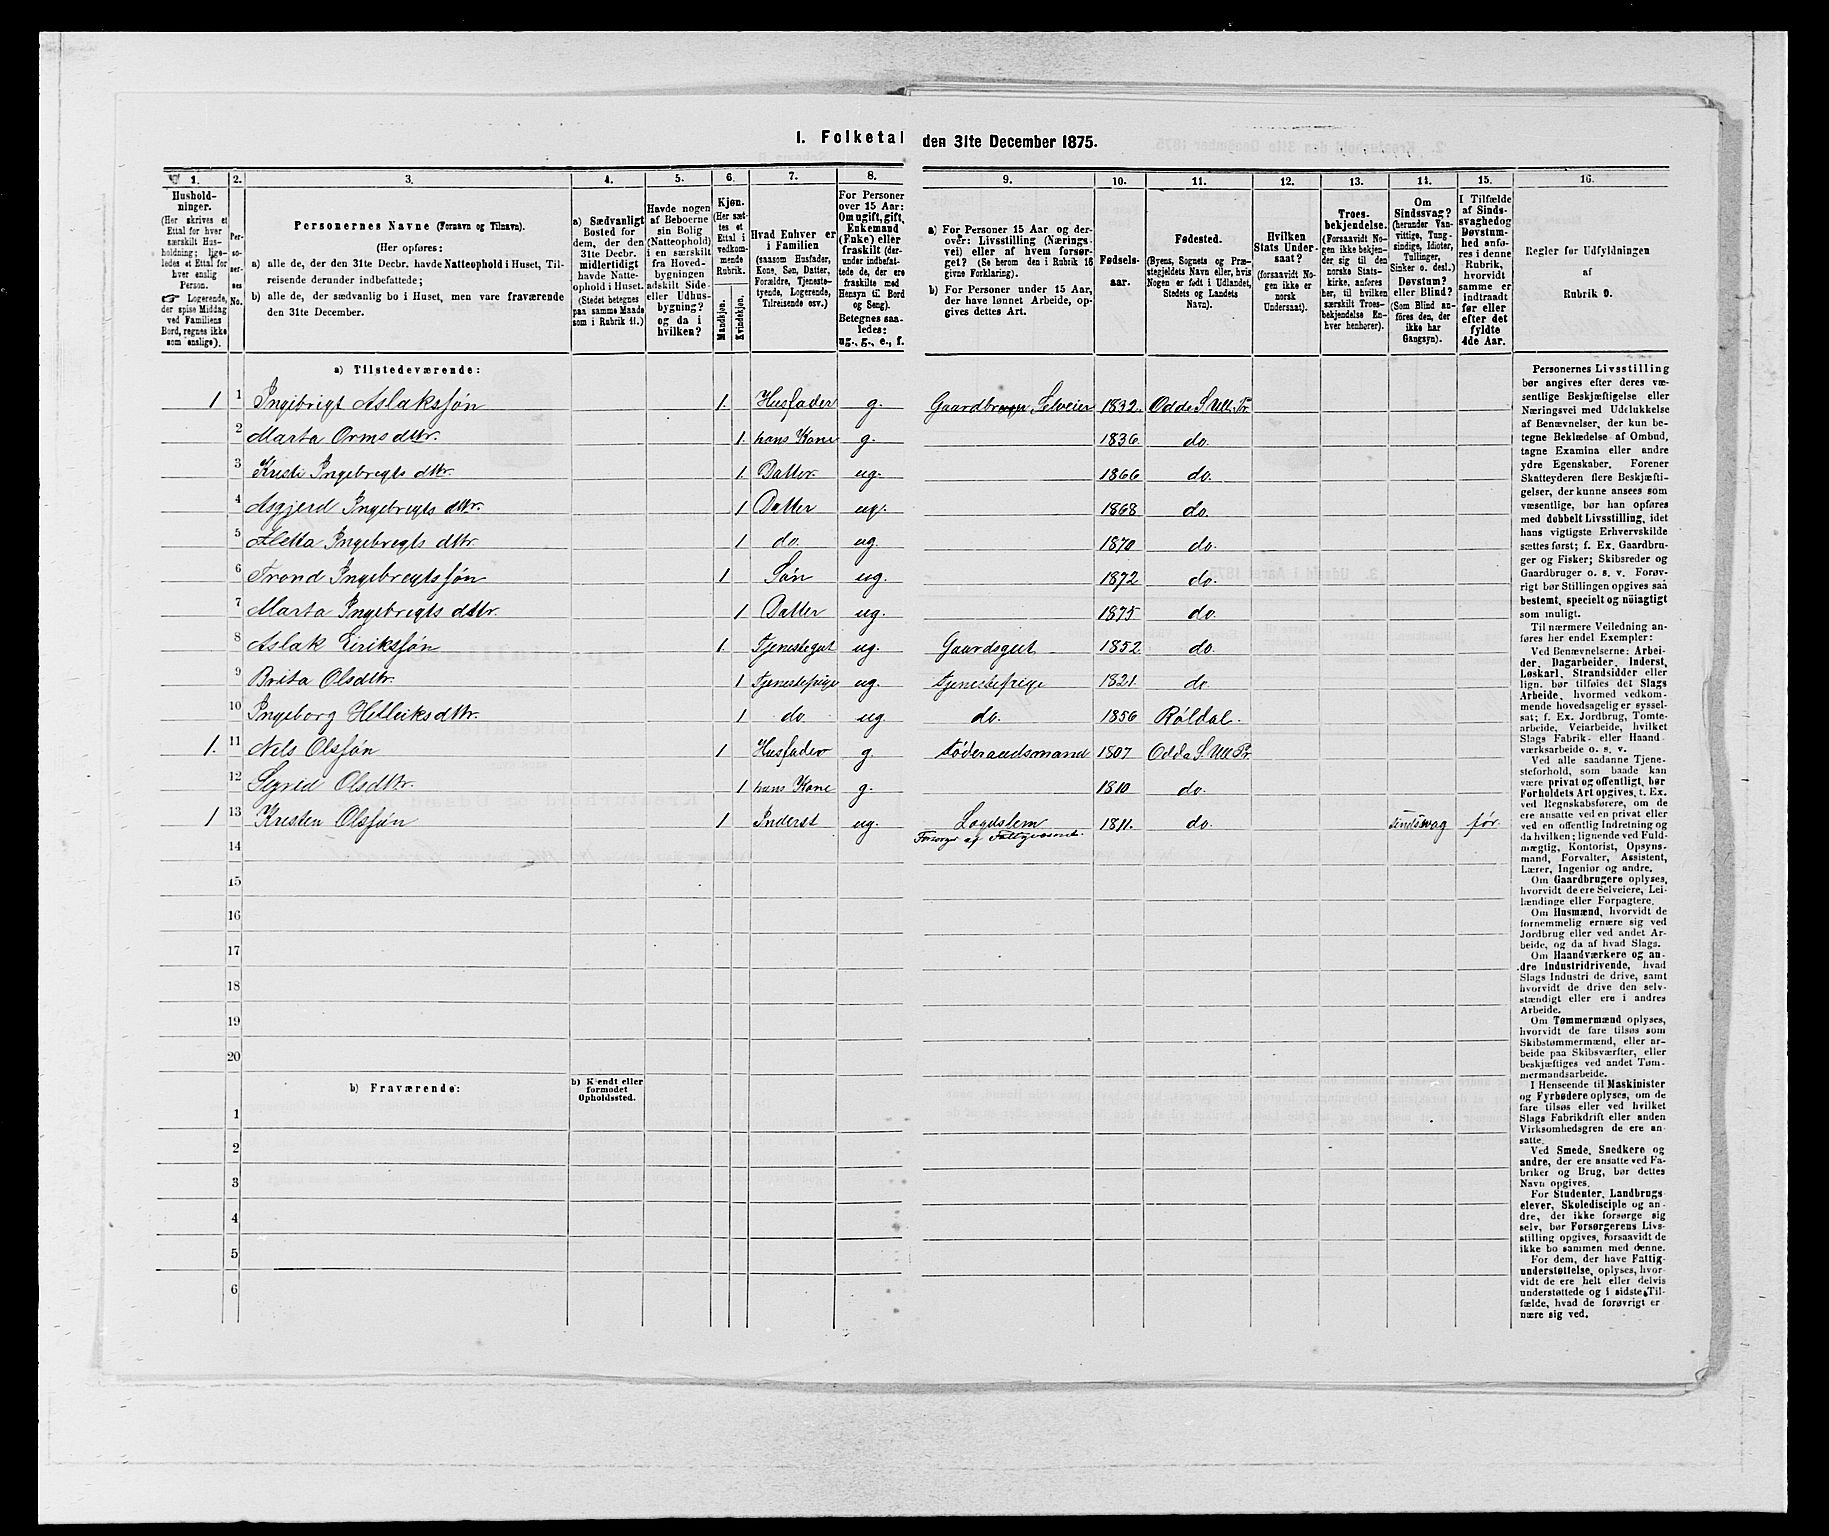 I. Folketal den 31te December 1875.
1. 2. 3. 4. 5. 6. 7. 8. 9. 10. 11. 12. 13. 14. 15. 16.
Husholdninger.
(Her skrives et
Ettal for hver
særskilt Husholdning;
ligeledes et Ettal for
hver enslig
Person.
☞ Logerende,
der spise Middag
ved Familiens
Bord, regnes ikke
som enslige).
Personernes No.
Personernes Navne (Fornavn og Tilnavn).
(Her opføres:
a) alle de, der den 31te Decbr. havde Natteophold i Huset, Tilreisende derunder indbefattede;
b) alle de, der sædvanlig bo i Huset, men vare fraværende
den 31te December.
a) Sædvanligt
Bosted for
dem, der den
31te Decbr.
midlertidigt
havde Natteophold i Huset.
(Stedet betegnes
paa samme Maade
som i Rubrik 11.)
Havde nogen
af Beboerne
sin Bolig
(Natteophold)
i en særskilt
fra Hovedbygningen
adskilt Side-
eller Udhusbygning?
og da i
hvilken?
Kjøn.
(Her sættes et
Ettal i
vedkommende
Rubrik.
Mandkjøn.
Kvindekjøn.
Hvad Enhver er
i Familien
(saasom Husfader,
Kone, Søn, Datter,
Forældre, Tjenestetyende, Logerende,
Tilreisende osv.)
For Personer
over 15 Aar:
Om ugift, gift,
Enkemand
(Enke) eller
fraskilt (derunder indbefattede de, der ere
fraskilte med
Hensyn til Bord
og Seng).
Betegnes saaledes:
ug., g., e., f.
a) For Personer 15 Aar og derover: Livsstilling (Næringsvei) eller af hvem forsørget? (Se herom den i Rubrik 16
givne Forklaring).
b) For Personer under 15 Aar,
der have lønnet Arbeide, opgives dettes Art.
Fødselsaar.
Fødested.
(Byens, Sognets og Præstegjeldets Navn eller, hvis
Nogen er født i Udlandet,
Stedets og Landets
Navn).
Hvilken
Stats Undersaat?
(forsaavidt Nogen ikke er
norsk
Undersaat).
Troesbekjendelse.
(Forsaavidt Nogen ikke bekjender sig til den
norske Statskirke, anføres
her, til hvilken
særskilt Troesbekjendelse Enhver henhører).
Om
Sindssvag?
(herunder Vanvittige, Tungsindige, Idioter,
Tullinger,
Sinker o. desl.)
Døvstum?
eller Blind?
(Som Blind anføres den, der
ikke har
Gangsyn).
I Tilfælde
af Sindssvaghed og
Døvstumhed anføres i denne
Rubrik,
hvorvidt
samme er
indtraadt
før eller
efter det
fyldte
4de Aar.
Regler før Udfyldningen
af
Rubrik 9.
a) Tilstedeværende:
1 1 Ingebrigt Aslaksøn 1. Husfader g. Gaardbruger Selveier 1832. Odde S. Ull. Pr.
2 Marta Orms dttr. 1. hans Kone g. 1836 do.
3 Kristi Ingebregts dttr. 1. Datter ug. 1866 do.
4 Asgjerd Ingebregts dttr. 1 Datter ug. 1868 do.
5 Metta Ingebregts dttr. 1 do. ug. 1870 do.
6 Trond Ingebregtsøn 1 Søn ug. 1872 do.
7 Marta Ingebrigts dttr. 1 Datter ug. 1875 do.
8 Aslak Eiriksøn 1. Tjenestegut ug. Gaardsgut 1852. do
9 Brita Olsdttr. 1 Tjenestepige ug. Tjenestepige 1821. do.
10 Ingeborg Helleiksdttr. 1 do. ug do. 1856 Røldal.
1. 11 Nels Olsøn 1 Husfader g. Føderaadsmand 1807 Odda S. Ull. Pr.
12 Sigrid Olsdttr. 1 hans Kone g. 1810 do.
1 13 Kristen Olsøn 1 Inderst ug. Lægdslem 1811. do. sindssvag før.
Forsørges af Fattigvæsenet
14
15
16
17
18
19
20
b) Fraværende: b) Kjendt eller
formodet
Opholdssted.
1
2
3
4
5
6
Personernes Livsstilling
bør angives efter deres væsentlige Beskjæftigelse eller
Næringsvei med Udelukkelse
af Benævnelser, der kun betegne Beklædelse af Ombud,
tagne Examina eller andre
ydre Egenskaber. Forener
Skatteyderen flere Beskjæftigelser, der kunne ansees som
væsentlige, bør han opføres
med dobbelt Livsstilling, idet
hans vigtigste Erhvervskilde
sættes først; f. Ex. Gaardbruger og Fisker; Skibsreder og
Gaardbruger o. s. v. Forøvrigt bør Stillingen opgives saa
bestemt, specielt og nöiagtigt
som muligt.
Til nærmere Veiledning anføres her endel Exempler:
Ved Benævnelserne: Arbeider, Dagarbeider, Inderst,
Løskarl, Strandsidder eller
lign. bør tilføies det Slags
Arbeide, hvormed vedkommende hovedsagelig er sysselsat; f. Ex. Jordbrug, Tomtearbeide, Veiarbeide, hvilket
Slags Fabrik- eller Haandværksarbeide o. s. v.
Ved alle saadanne Tjenesteforhold, som baade kan
være privat og offentligt, bør
Forholdets Art opgives, t. Ex.
ved Regnskabsførere, om de
ere ansatte ved en privat eller
ved en offentlig Indretning og
da hvilken; lignende ved Fuldmægtig, Kontorist, Opsynsmand, Forvalter, Assistent,
Lærer, Ingeniør og andre.
Om Gaardbrugere oplyses,
hvorvidt de ere Selveiere, Leilændinge eller Forpagtere.
Om Husmænd, hvorvidt de
fornemmelig ernære sig ved
Jordbrug eller ved andet Arbeide, og da af hvad Slags.
Om Haandværkere og andre Industridrivende, hvad
Slags Industri de drive, samt
hvorvidt de drive den selvstændigt eller ere i andres
Arbeide.
Om Tømmermænd oplyses,
hvorvidt de fare tilsøs som
Skibstømmermænd, eller arbeide paa Skibsværfter, eller
beskjæftiges ved andet Tømmermandsarbeide.
I Henseende til Maskinister
og Fyrbødere oplyses, om de
fare tilsøs eller ved hvilket
Slags Fabrikdrift eller anden
Virksomhedsgren de ere ansatte.
Ved Smede, Snedkere og
andre, der ere ansatte ved Fabriker og Brug, bør dettes
Navn opgives.
For Studenter, Landbrugselever, Skoledisciple og andre, der ikke forsørge sig
selv, bør Forsørgerens Livsstilling opgives, forsaavidt de
ikke bo sammen med denne.
For dem, der have Fattigunderstøttelse, oplyses, hvorvidt de ere helt eller delvis
understøttede og i sidste Tilfælde, hvad de forøvrigt ernære sig ved.